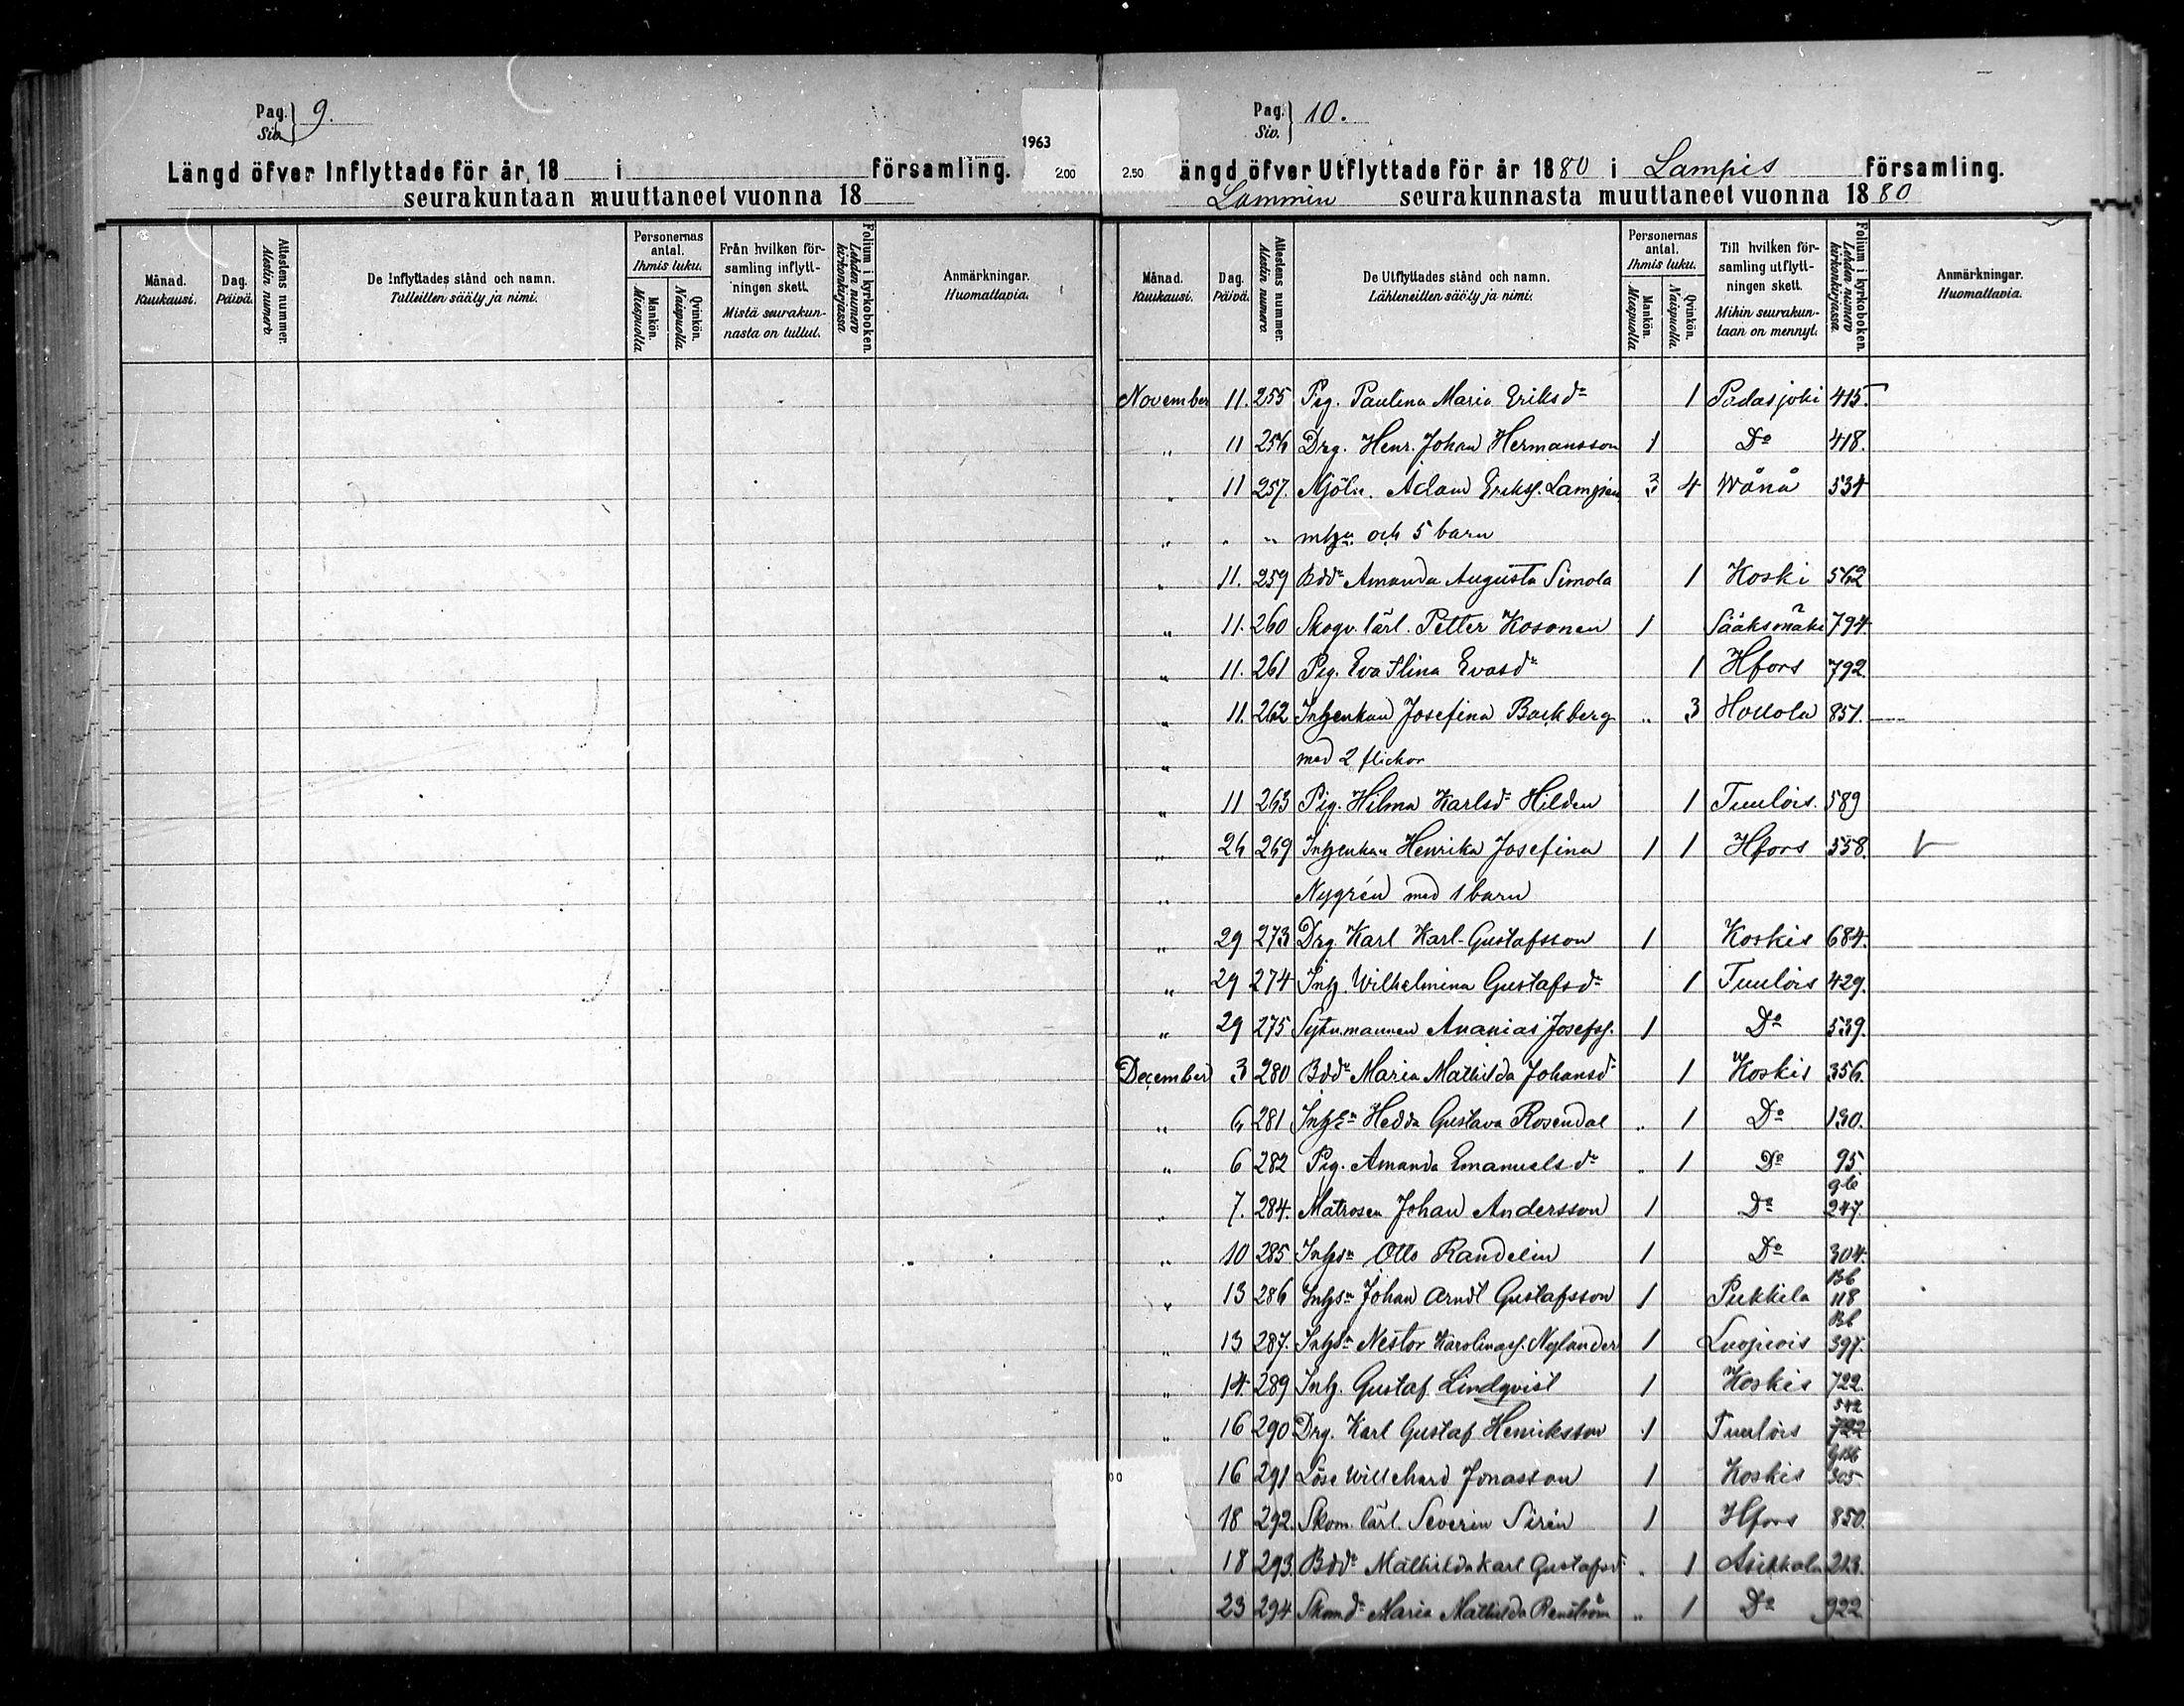 Pag. 9.
Siv.
Längd öfver Inflyttade för år 18 i församling.
seurakuntaan muuttaneet vuonna 18
Månad. Kuukausi.
Dag. Päivä.
Attestens nummer. Atestin numero.
De Inflyttades stånd och namn. Tulleitten sääty ja nimi.
Personernas antal. Ihmis luku.
Mankön. Miespuolia
Qvinkön. Naispuolia.
Från hvilken församling inflyttningen skett. Mistä seurakunnasta on tullut.
Folium i kyrkoboken. Lehden numero kirkonkirjassa
Anmärkningar. Huomattavia.
1963
2.00
2.50
Pag. 10.
Siv.
ängd öfver Utflyttade för år 1880 i Lampis församling.
Lammin seurakunnasta muuttaneet vuonna 1880
Månad. Kuukausi.
Dag. Päivä.
Attestens nummer. Atestin numero.
De Utflyttades stånd och namn. Lähteneitten sääty ja nimi.
Personernas antal. Ihmis luku.
Mankön. Miespuolia
Qvinkön. Naispuolia.
Till hvilken församling utflyttningen skett. Mihin seurakuntaan on mennyt.
Folium i kyrkoboken. Lehden numero kirkonkirjassa
Anmärkningar. Huomattavia.
November 11. 255 Pig. Paulina Maria Eriksdr 1 Padasjoki 415.
„ 11 256 Drg. Henr. Johan Hermansson 1 Do 418.
„ 11 257. Mjöln. Adam Eriks. Lampen 3 4 Wånå 534
„ „ „ och 5 barn
„ 11. 259 Bddr Amanda Augusta Simola 1 Koski 562
„ 11. 260 Skogv. lärl. Petter Kosonen 1 Sääksmäki 794.
„ 11. 261 Pig. Eva Stina Evasdr 1 Hfors 792.
„ 11. 262 Inhyenkan Josefina Backberg „ 3 Hollola 851.
„ med 2 flickor
„ 11 263 Pig. Hilma Karlsdr Hilden 1 Tuulois. 589
„ 26 269 Inhyenkan Henrika Josefina 1 1 Hfors 558.
„ Nygrén med 1 barn
„ 29 273 Drg. Karl Karl-Gustafsson 1 Koskis 684.
„ 29 274 Inh. Wilhelmina Gustafsdr 1 Tuulois 429.
„ 29 275 Sytn.mannen Ananias Josefs. 1 Do 539.
December 3 280 Bddr Maria Mathilda Johansdr 1 Koskis 356.
„ 6 281 Hedda Gustava Rosendal „ 1 Do 130.
„ 6 282 Pig. Amanda Emanuelsdr „ 1 Do 95
„ 7. 284. Matrosen Johan Andersson 1 Do 247.
„ 10 285 Inhsn Otto Randelin 1 Do 304.
„ 13 286 Inhsn Johan Arndt Gustafsson 1 Pukkila Bb 118
„ 13 287. Inhsn Nestor Karolinas. Nylander 1 Luopiois Bb 397.
„ 14. 289 Inh. Gustaf Lindqvist 1 Koskis 722.
„ 16 290 Drg. Karl Gustaf Henriksson 1 Tuulois 542 722
16 291 Löse Willehard Jonasson 1 Koskis 305.
18 292. Skom. lärl. Severin Sirén 1 Hfors 850.
18 293. Bddr Mathilda Karl Gustafsdr „ 1 Asikkala
23 294 Skomdr Maria Mathilda Renström „ 1 Do 922